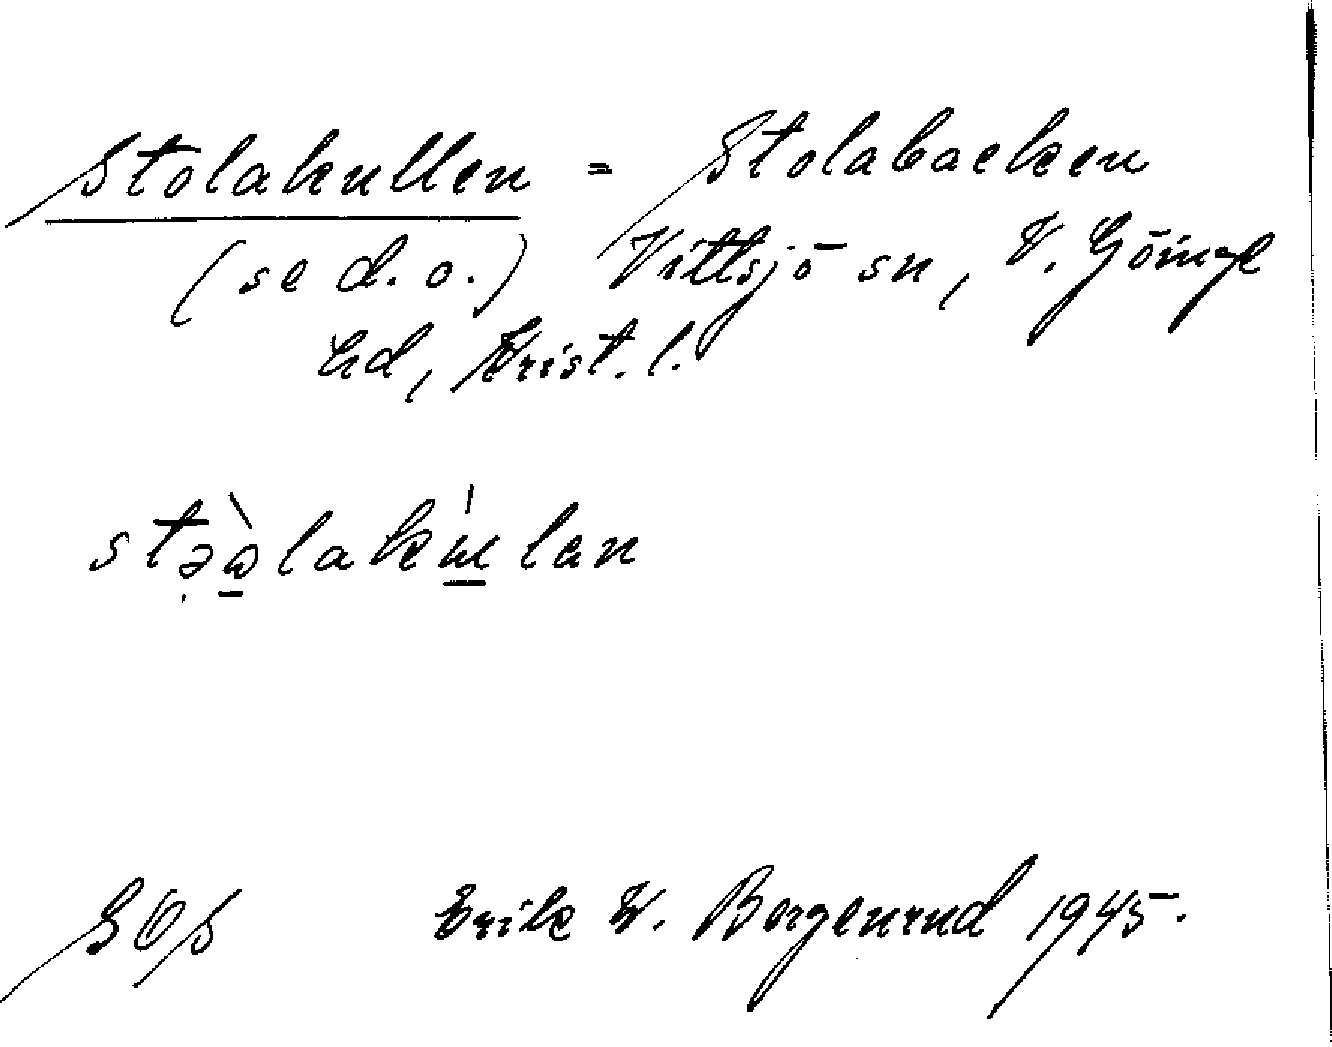 Stolakullen = Stolabacken
(se d.o.) Vittsjö sn, V. Göinge
hd, Krist. l.
Erik W. Bergenrud 1945.